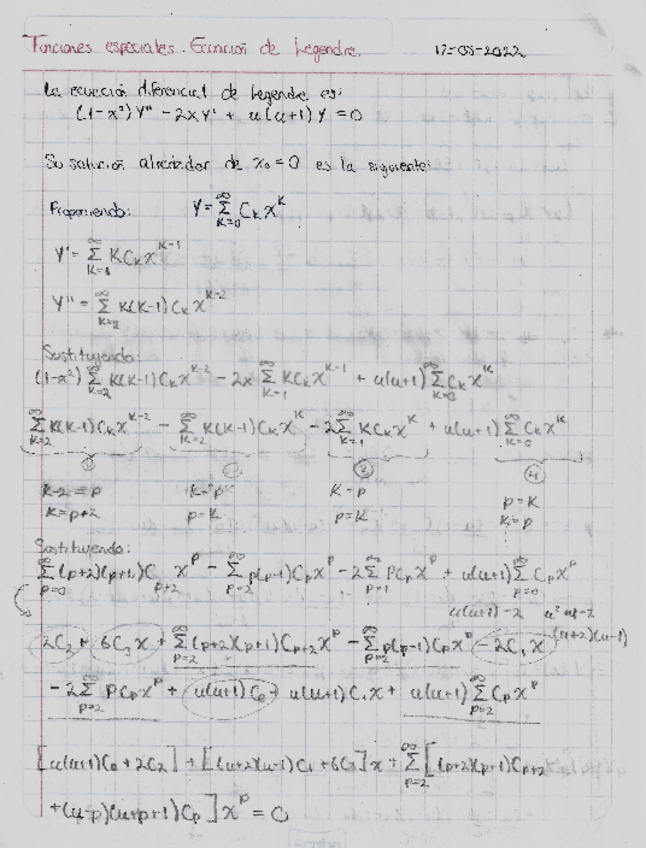 Funciones especiales. Ecuación de Legendre. 17-05-2022
La ecuación diferencial de Legendre es:
(1-x²)y'' - 2xy' + u(u+1)y = 0
Su solución alrededor de x₀=0 es la siguiente:
Proponiendo: y = Σ_{k=0}^{∞} C_k x^k
y' = Σ_{k=1}^{∞} k C_k x^{k-1}
y'' = Σ_{k=2}^{∞} k(k-1) C_k x^{k-2}
Sustituyendo:
(1-x²) Σ_{k=2}^{∞} k(k-1) C_k x^{k-2} - 2x Σ_{k=1}^{∞} k C_k x^{k-1} + u(u+1) Σ_{k=0}^{∞} C_k x^k
Σ_{k=2}^{∞} k(k-1) C_k x^{k-2} - Σ_{k=2}^{∞} k(k-1) C_k x^k - 2 Σ_{k=1}^{∞} k C_k x^k + u(u+1) Σ_{k=0}^{∞} C_k x^k
④
k-2=p k=p k=p p=k
k=p+2 p=k p=k k=p
Sustituyendo:
Σ_{p=0}^{∞} (p+2)(p+1) C_{p+2} x^p - Σ_{p=2}^{∞} p(p-1) C_p x^p - 2 Σ_{p=1}^{∞} p C_p x^p + u(u+1) Σ_{p=0}^{∞} C_p x^p
u(u+1)-2 u²+u-2
(u+2)(u-1)
2C₂ + 6C₃x + Σ_{p=2}^{∞} (p+2)(p+1) C_{p+2} x^p - Σ_{p=2}^{∞} p(p-1) C_p x^p - 2C₁x
- 2 Σ_{p=2}^{∞} p C_p x^p + u(u+1) C₀ + u(u+1) C₁x + u(u+1) Σ_{p=2}^{∞} C_p x^p
[u(u+1)C₀ + 2C₂] + [(u+2)(u-1)C₁ + 6C₃]x + Σ_{p=2}^{∞} [(p+2)(p+1)C_{p+2}
+(u-p)(u+p+1)C_p] x^p = 0